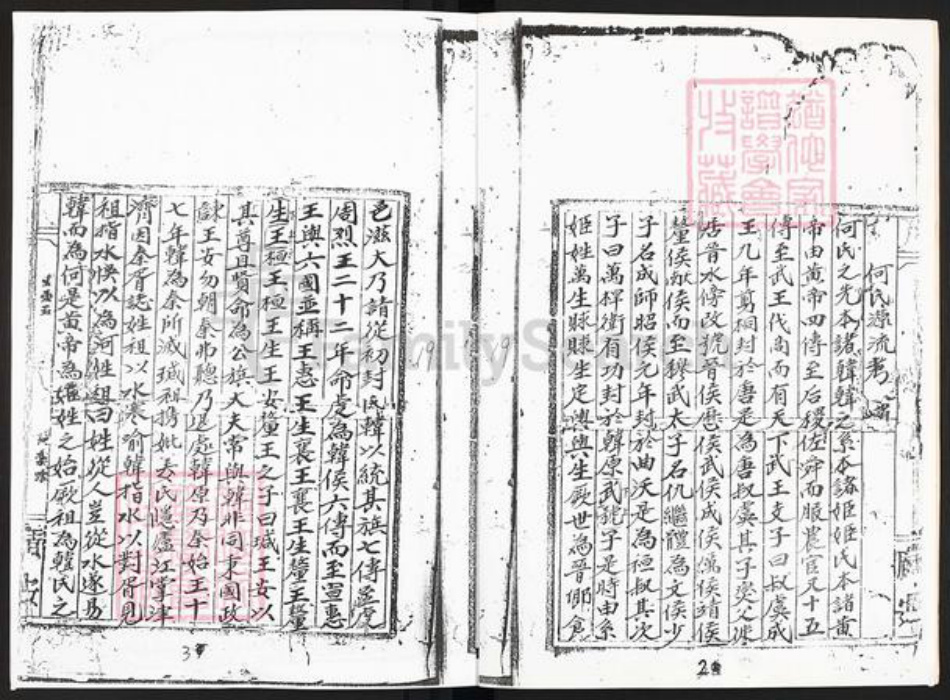 何氏源流考
何氏之先本諸韓韓之系本諸姬姬氏本諸黃
帝由黃帝四傳至后稷佐舜而服農官又十五
傳至武王代商而有天下武王支子曰叔虞成
王九年剪桐封於唐是為唐叔虞其子燮父
居晉水傍改號晉侯歷侯武侯成侯侯靖侯
釐侯獻侯而至穆武太子名仇繼體為文侯少
子名成師昭侯元年封於曲沃是為桓叔其次
子曰萬有功封於韓原武子是時由系
姬姓萬生賕賕生定輿輿生厥世為晉卿食
邑滋大乃請從初封氏韓以統其族七傳虔
周烈王二十二年命虔為韓侯六傳而至宣惠
王與六國並稱王惠王生襄王襄王生釐王釐
生王桓王桓王生王安釐王之子曰瑊王安以
其尊且賢命為公族大夫常與韓非同秉國政
諫王安勿朝秦弗聽乃退處韓原乃秦始王十
七年韓為秦所滅瑊祖携妣去氏隱廬江掌津
濟因秦胥誌姓祖以水寒喻韓指水以對胥見
祖指水悞以為河姓祖曰姓從人豈從水遂易
韓而為何是黃帝為姬姓之始厥祖為韓氏之
19
19
3
2